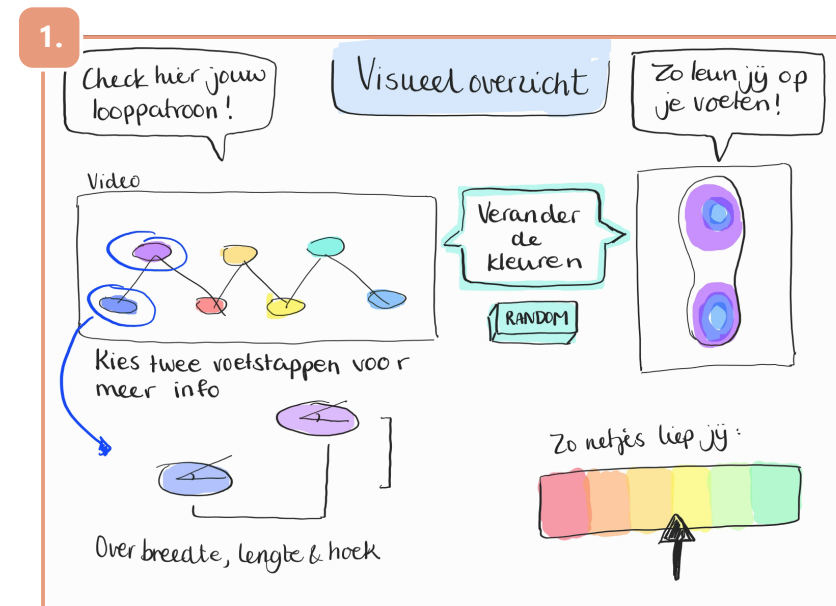 1.
Check hier jouw
looppatroon!
Visueel overzicht
Zo leun jij op
je voeten!
Video
Verander
de
kleuren
RANDOM
Kies twee voetstappen voor
meer info
Zo netjes liep jij:
Over breedte, lengte & hoek